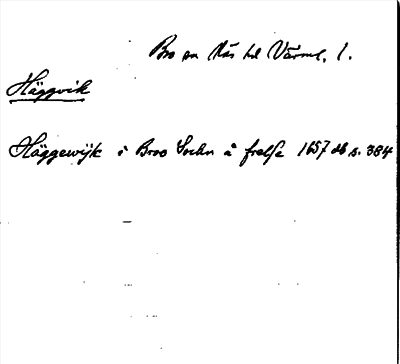 Bro sn Näs hd Värml. l.
Häggvik
Häggewijk i Broo Sockn å frelse 1657 db s. 384